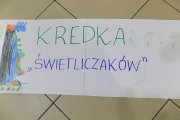 KREDKA
„ŚWIETLICZAKÓW"